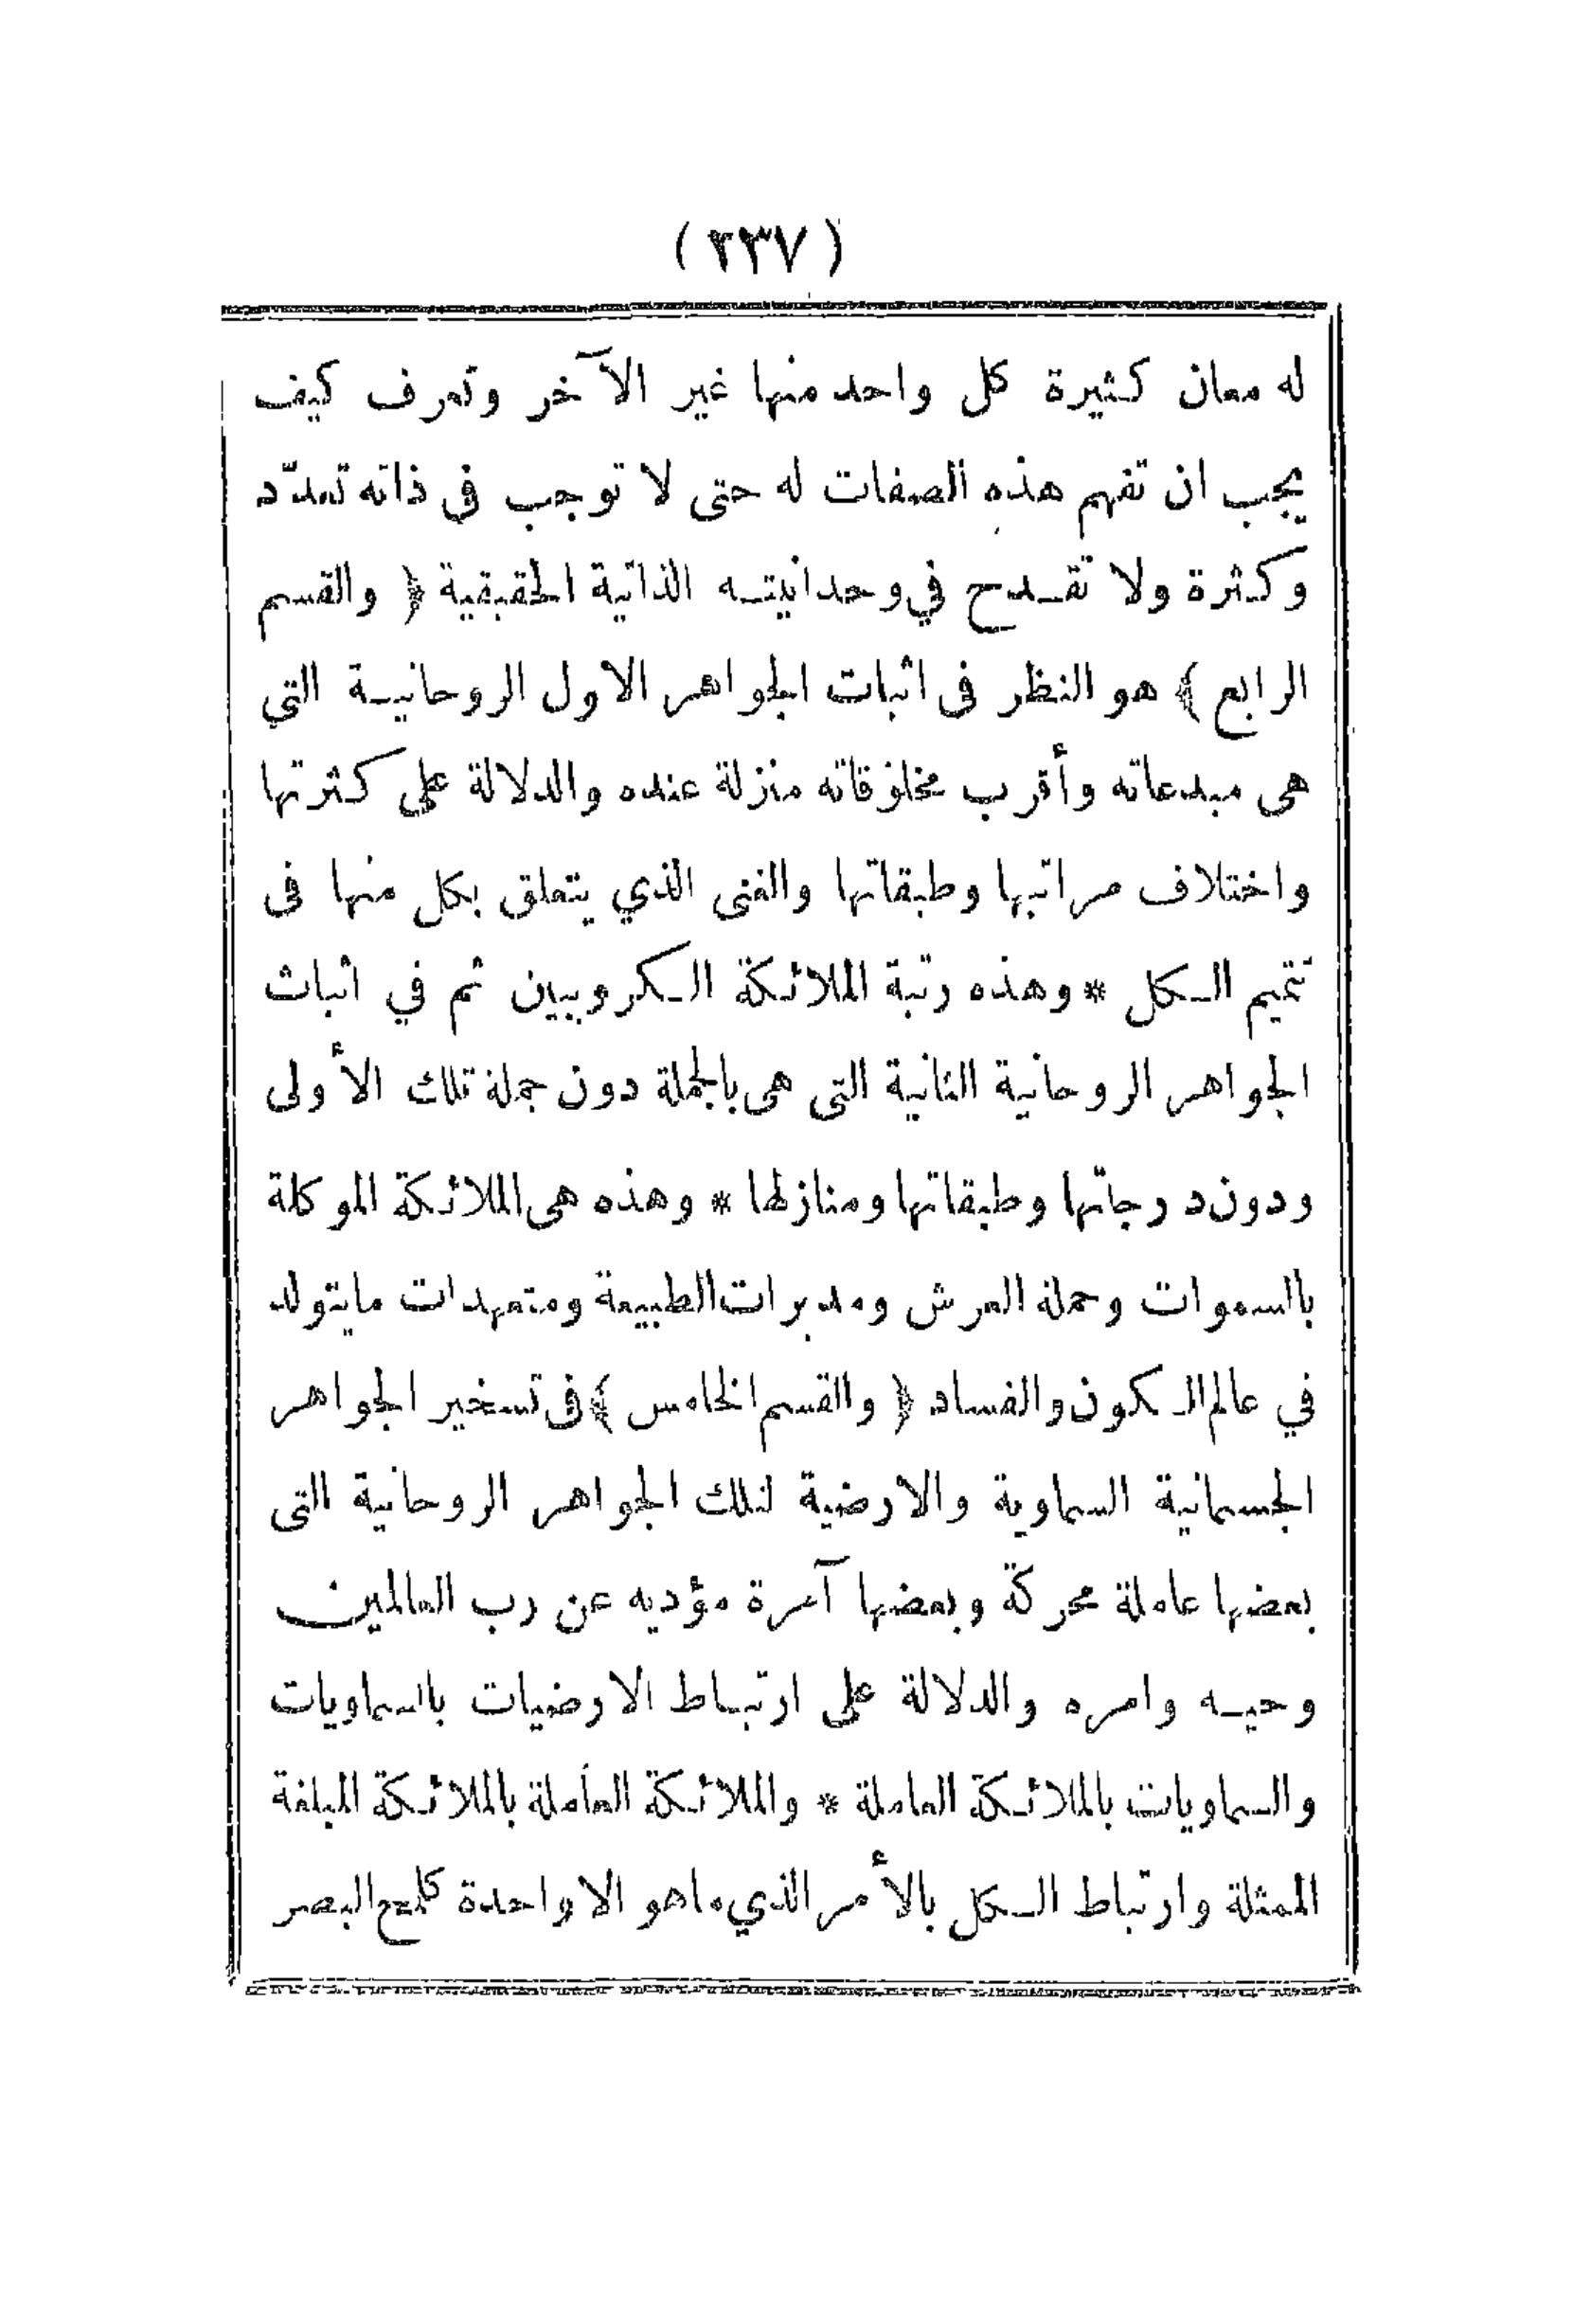 ( ٢٣٧ )
له معان كثيرة كل واحد منها غير الآخر وتعرف كيف
يجب ان تفهم هذه الصفات له حتى لا توجب فى ذاته تعدّد
وكثرة ولا تقدح في وحدانيته الذاتية الحقيقية ﴿ والقسم
الرابع ﴾ هو النظر فى اثبات الجواهر الاول الروحانية التي
هى مبدعاته وأقرب مخلوقاته منزلة عنده والدلالة على كثرتها
واختلاف مراتبها وطبقاتها والغنى الذي يتعلق بكل منها فى
تتميم الكل * وهذه رتبة الملائكة الكروبيين ثم في اثبات
الجواهر الروحانية الثانية التى هى بالجملة دون جملة تلك الأولى
ودون درجاتها وطبقاتها ومنازلها * وهذه هى الملائكة الموكلة
بالسموات وحملة العرش ومدبرات الطبيعة ومتعهدات مايتولد
في عالم الكون والفساد ﴿ والقسم الخامس ﴾ فى تسخير الجواهر
الجسمانية السماوية والارضية لتلك الجواهر الروحانية التى
بعضها عاملة محركة وبعضها آمرة مؤديه عن رب العالمين
وحيه وامره والدلالة على ارتباط الارضيات بالسماويات
والسماويات بالملائكة العاملة * والملائكة العاملة بالملائكة المبلغة
الممثلة وارتباط الكل بالأمر الذي ماهو الا واحدة كلمح البصر